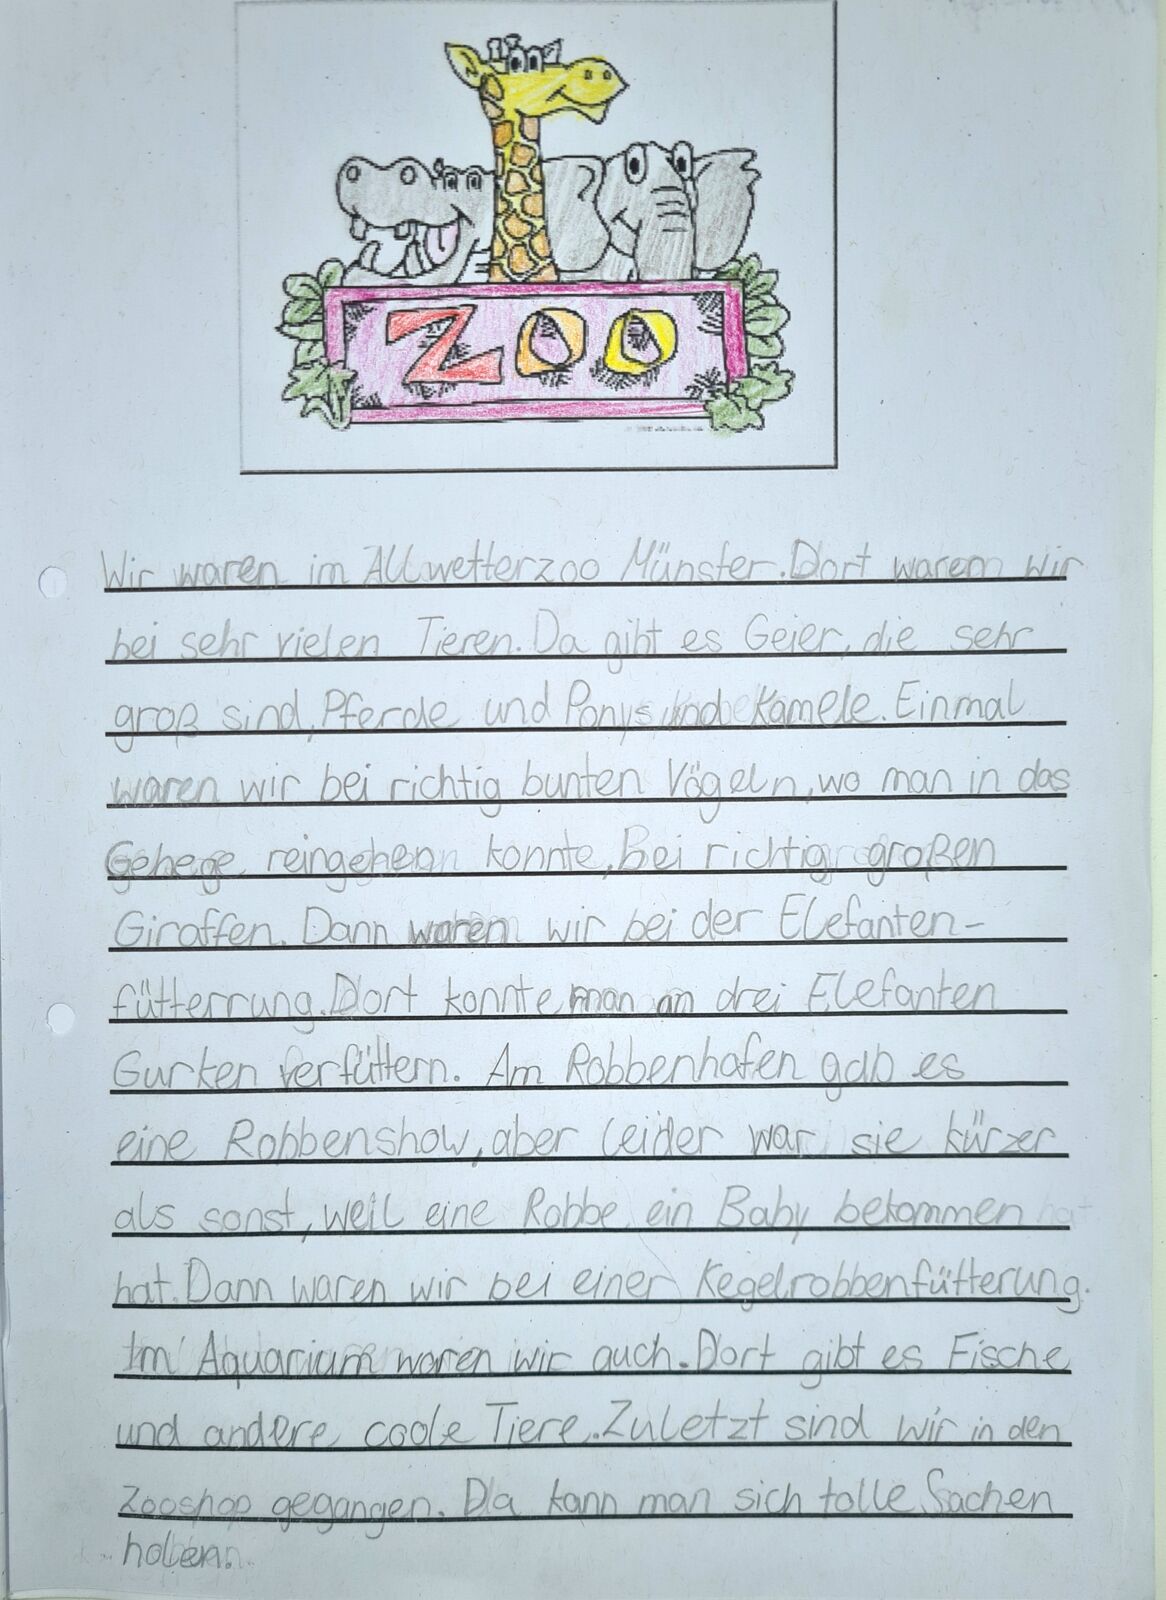 ZOO
Wir waren im Allwetterzoo Münster. Dort waren wir
bei sehr vielen Tieren. Da gibt es Geier, die sehr
groß sind, Pferde und Ponys und Kamele. Einmal
waren wir bei richtig bunten Vögeln, wo man in das
Gehege reingehen konnte, Bei richtig großen
Giraffen. Dann waren wir bei der Elefanten-
fütterrung. Dort konnte man an drei Elefanten
Gurken verfüttern. Am Robbenhafen gab es
eine Robbenshow, aber leider war sie kürzer
als sonst, weil eine Robbe ein Baby bekommen
hat. Dann waren wir bei einer Kegelrobbenfütterung.
Im Aquarium waren wir auch. Dort gibt es Fische
und andere coole Tiere. Zuletzt sind wir in den
Zooshop gegangen. Da kann man sich tolle Sachen
holen.